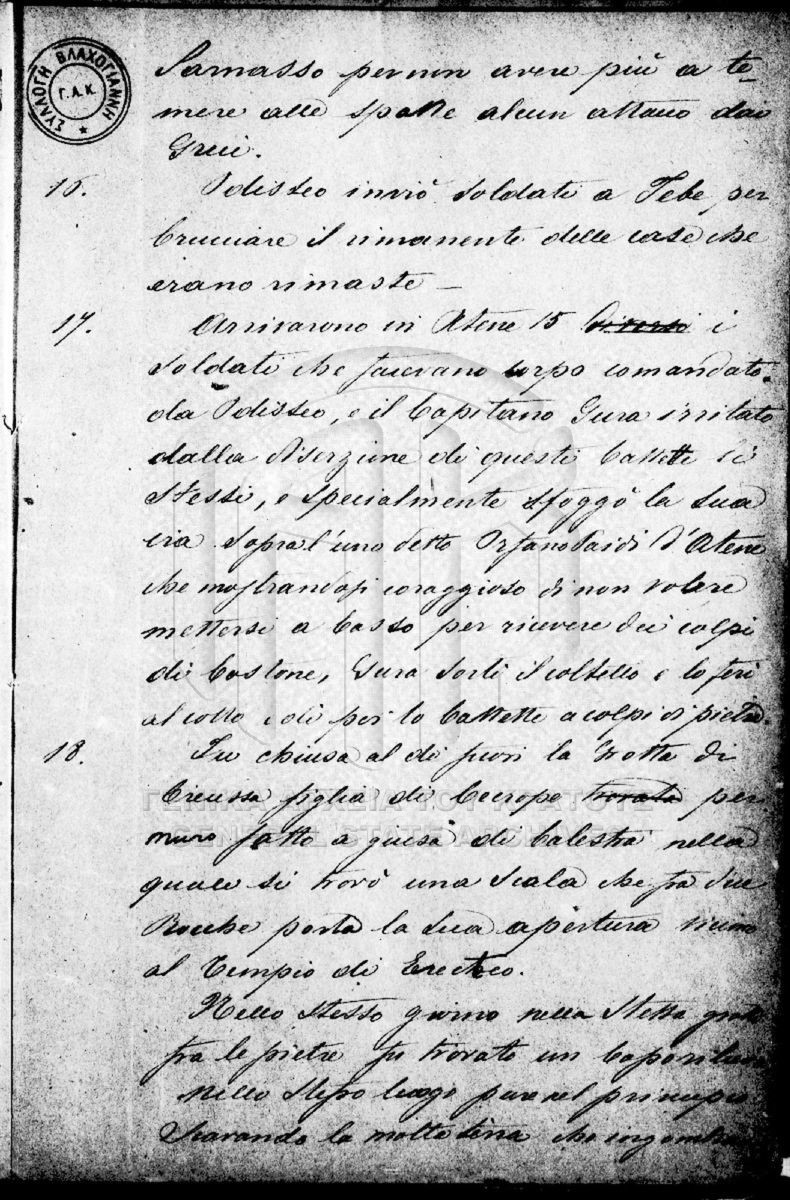 ΣΥΛΛΟΓΗ ΒΛΑΧΟΓΙΑΝΝΗ
Γ.Α.Κ.
Parnasso per non avere più a te-
mere alle spalle alcun attacco dai
Greci.
16. Odisseo inviò soldati a Tebe per
bruciare il rimanente delle case che
erano rimaste —
17. Arrivarono in Atene 15 diversi i
soldati che facevano corpo comandato
da Odisseo, e il Capitano Gura irritato
dalla diserzione di questi battette li
stessi, e specialmente sfoggò la sua
ira sopra l'uno detto d'Atene
che mostrandosi coraggioso di non volere
mettersi a basso per ricevere dei colpi
di bastone, Gura sortì il coltello e lo ferì
al collo e di poi lo battette a colpi di pietra.
18. Fu chiusa al di fuori la Grotta di
Creussa figlia di Cecrope trovata per
muro fatto a guisa di balestra nella
quale si trovò una scala che fra due
Rocche porta la sua apertura vicino
al Tempio di Erecteo.
Nello stesso giorno nella stessa
fra le pietre fu trovato un
nello stesso luogo pure nel principio
scavando la molta terra che